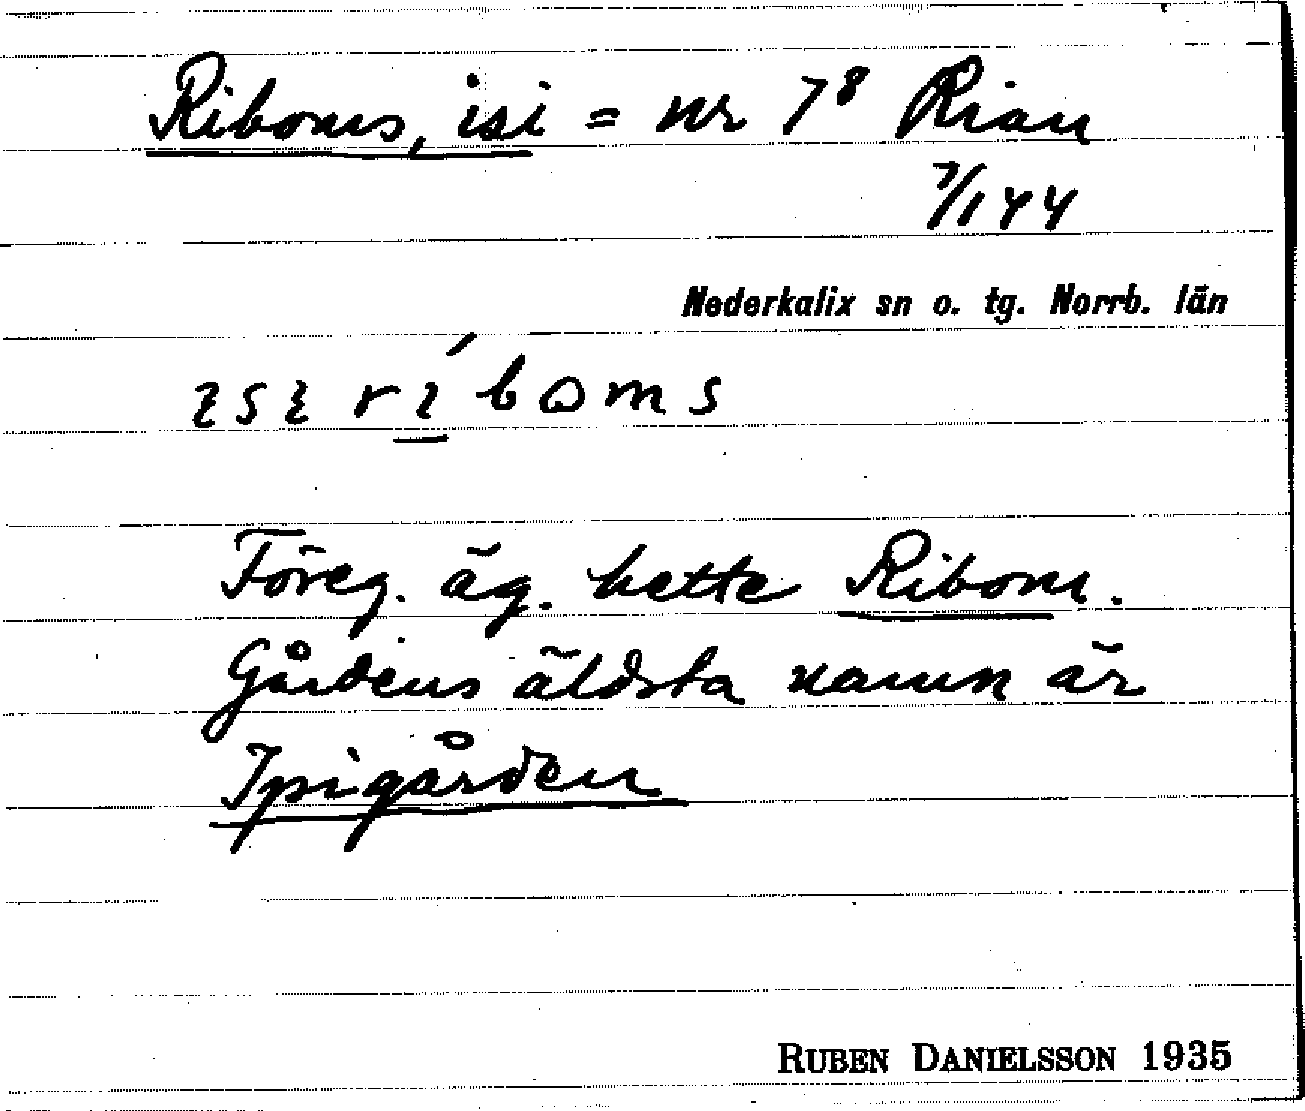 Riboms, isi = nr 7⁸ Rian
7/144
Nederkalix sn o. tg. Norrb. län
ısı rı́boms
Föreg. äg. hette Ribom.
Gårdens äldsta namn är
Ipigården
RUBEN DANIELSSON 1935